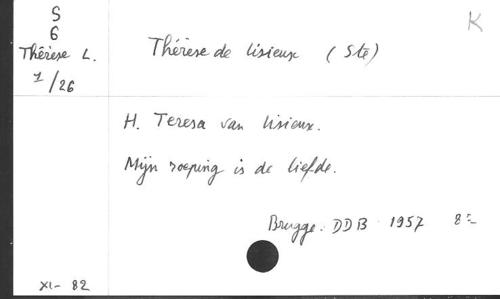 S
6
Thérèse L.
1/26
K
Thérèse de Lisieux (Ste)
H. Teresa van Lisieux.
Mijn roeping is de liefde.
Brugge. DDB. 1957 8°
XI- 82